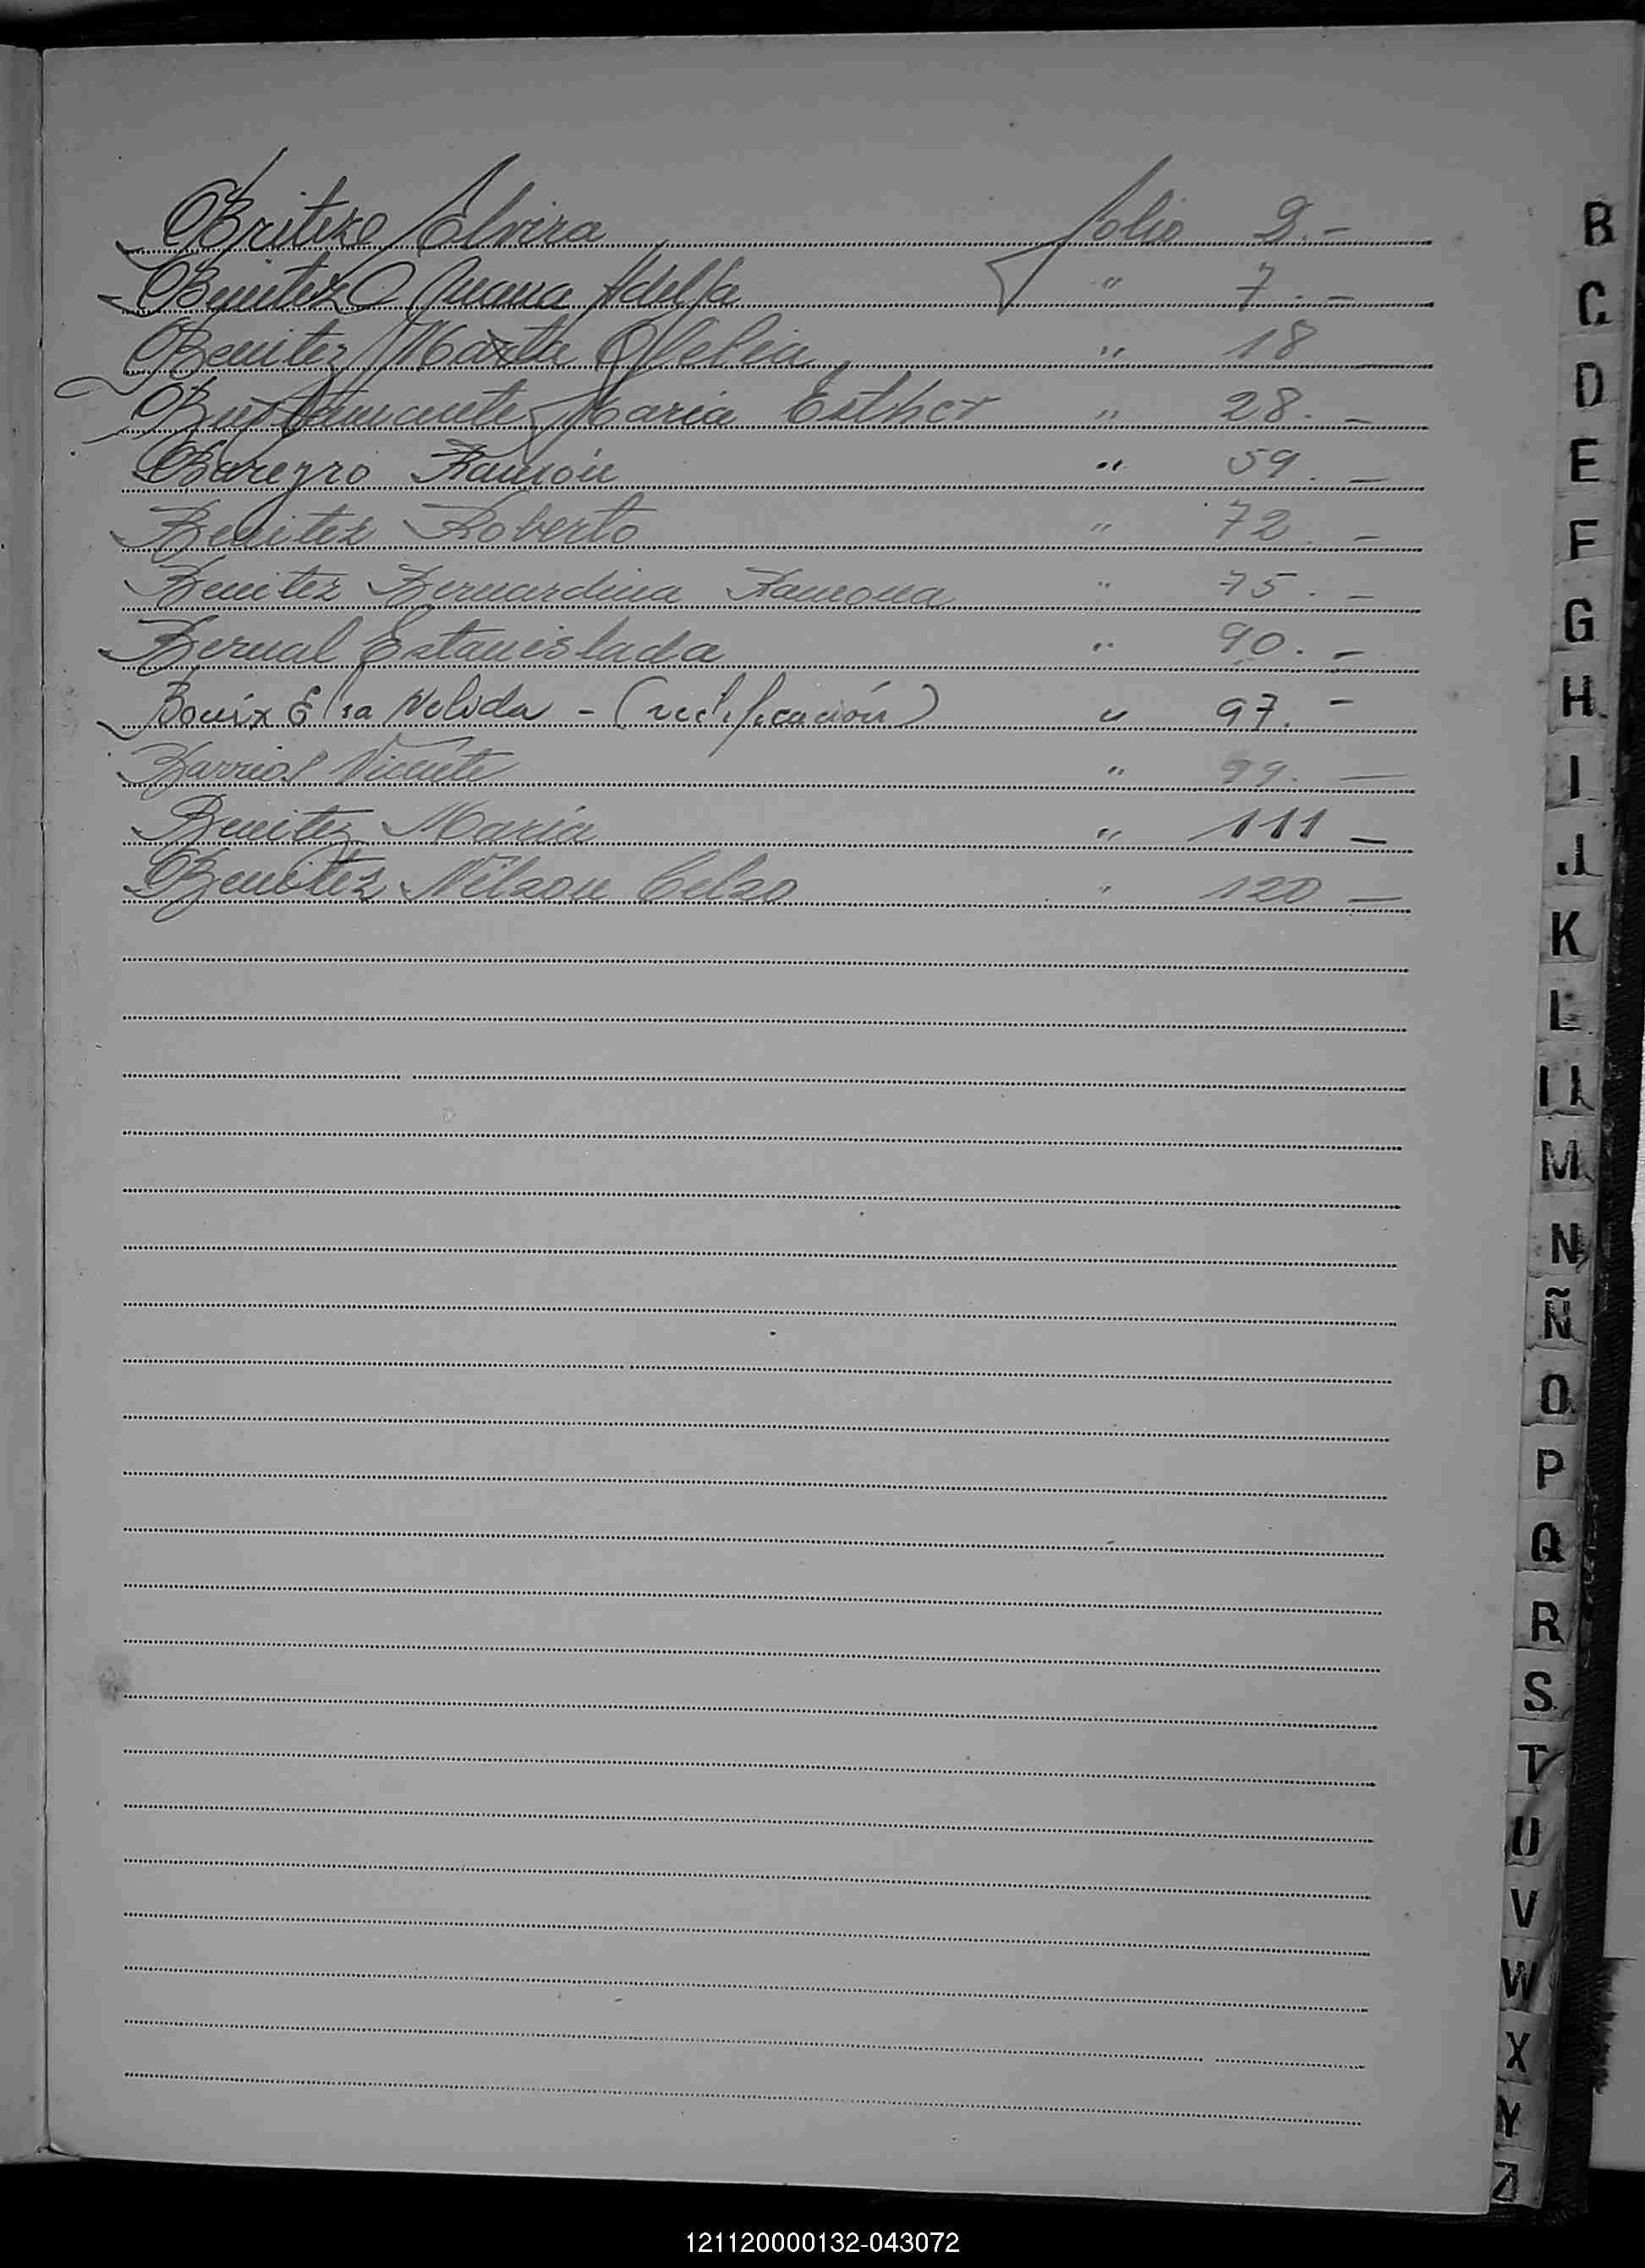 Britez Elvira folio 2.-
Benitez Juana Adelfa " 7.-
Benitez Marta Ofelia " 18
Bustamante Maria Esther " 28.-
Bareyro Ramón " 59.-
Benitez Roberto " 72.-
Benitez Bernardina Ramona " 75.-
Bernal Estanislada " 90.-
Bouix Elsa Nelida - (rectificación) " 97.-
Barrios Vicente " 99.-
Benitez Maria " 111-
Benitez Nelson Celso " 120-
B
C
D
E
F
G
H
I
J
K
L
LL
M
N
Ñ
O
P
Q
R
S
T
U
V
W
X
Y
Z
121120000132-043072